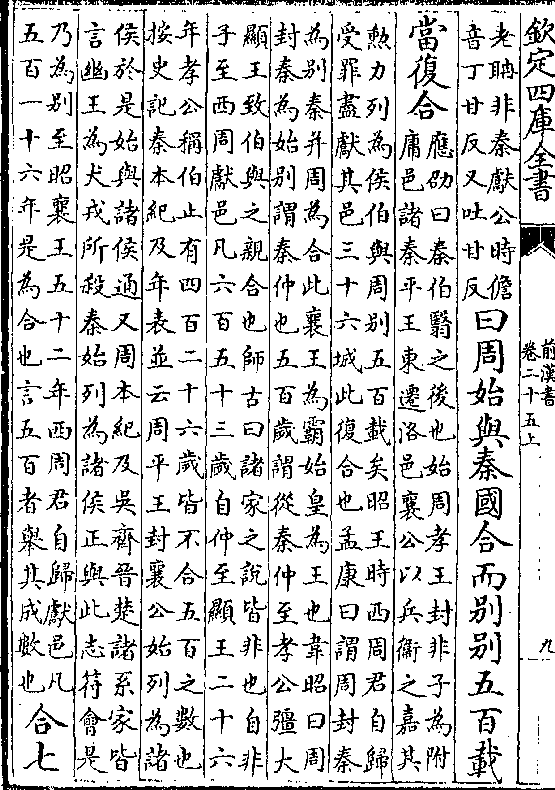 欽定四庫全書
前漢書
卷二十五上
九
老聃非秦獻公時儋
音丁甘反又吐甘反
曰周始與秦國合而别别五百載
當復合
應劭曰秦伯翳之後也始周孝王封非子為附
庸邑諸秦平王東遷洛邑襄公以兵衛之嘉其
勲力列為侯伯與周别五百載矣昭王時西周君自歸
受罪盡獻其邑三十六城此復合也孟康曰謂周封秦
為别秦并周為合此襄王為霸始皇為王也韋昭曰周
封秦為始别謂秦仲也五百歲謂從秦仲至孝公彊大
顯王致伯與之親合也師古曰諸家之說皆非也自非
子至西周獻邑凡六百五十三歲自仲至顯王二十六
年孝公稱伯止有四百二十六歲皆不合五百之數也
按史記秦本紀及年表並云周平王封襄公始列為諸
侯於是始與諸侯通又周本紀及吳齊晉楚諸系家皆
言幽王為犬戎所殺秦始列為諸侯正與此志符會是
乃為别至昭襄王五十二年西周君自歸獻邑凡
五百一十六年是為合也言五百者舉其成數也
合七